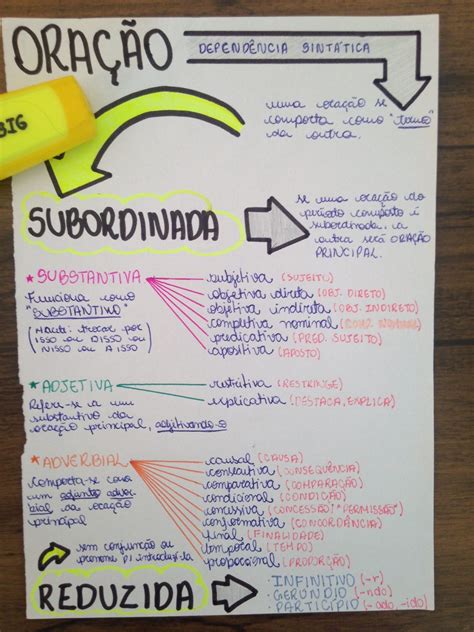 ORAÇÃO
DEPENDÊNCIA SINTÁTICA
BIG
uma oração se
comporta como "termo"
da outra.
SUBORDINADA
se uma oração do
período composto é
subordinada, a
outra será ORAÇÃO
PRINCIPAL.
* SUBSTANTIVA
Funciona como
"SUBSTANTIVO"
trocar por
ISSO OU DISSO OU
NISSO OU A ISSO
subjetiva (SUJEITO)
objetiva direta (OBJ. DIRETO)
objetiva indireta (OBJ. INDIRETO)
completiva nominal (COMP. NOMINAL)
predicativa (PRED. SUJEITO)
apositiva (APOSTO)
* ADJETIVA
Refere-se a um
substantivo da
oração principal, adjetivando-o
restritiva (RESTRINGE)
explicativa (DESTACA, EXPLICA)
* ADVERBIAL
comporta-se como
um adjunto adver-
bial da oração
principal
causal (CAUSA)
consecutiva (CONSEQUÊNCIA)
comparativa (COMPARAÇÃO)
condicional (CONDIÇÃO)
concessiva (CONCESSÃO: "PERMISSÃO")
conformativa (CONCORDÂNCIA)
final (FINALIDADE)
temporal (TEMPO)
proporcional (PROPORÇÃO)
sem conjunção ou
pronome p/ introduzi-la
REDUZIDA
· INFINITIVO (-r)
· GERÚNDIO (-ndo)
· PARTICÍPIO (-ado, -ido)